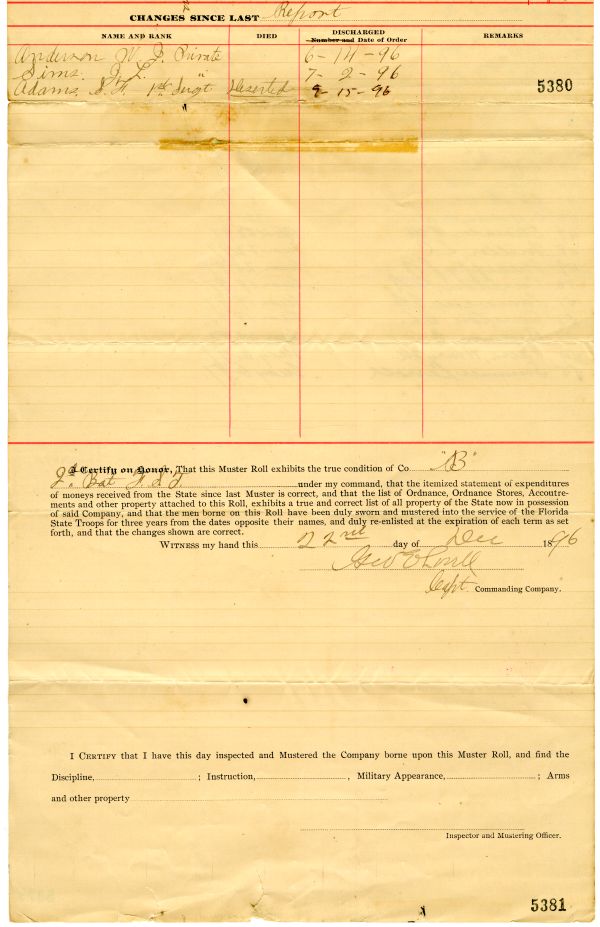 CHANGES SINCE LAST Report
NAME AND RANK DIED DISCHARGED Number and Date of Order REMARKS
Anderson W. J. Private 6-14-96
Sims. J. L. " 7-2-96
Adams. S. F. 1st Sergt Deserted 9-15-96
5380
I Certify on Honor, That this Muster Roll exhibits the true condition of Co "B"
2d Bat F. S. T under my command, that the itemized statement of expenditures
of moneys received from the State since last Muster is correct, and that the list of Ordnance, Ordnance Stores, Accoutre-
ments and other property attached to this Roll, exhibits a true and correct list of all property of the State now in possession
of said Company, and that the men borne on this Roll have been duly sworn and mustered into the service of the Florida
State Troops for three years from the dates opposite their names, and duly re-enlisted at the expiration of each term as set
forth, and that the changes shown are correct.
WITNESS my hand this 22nd day of Dec 1896
Geo E
Capt. Commanding Company.
I CERTIFY that I have this day inspected and Mustered the Company borne upon this Muster Roll, and find the
Discipline, ; Instruction, , Military Appearance, ; Arms
and other property
Inspector and Mustering Officer.
5381